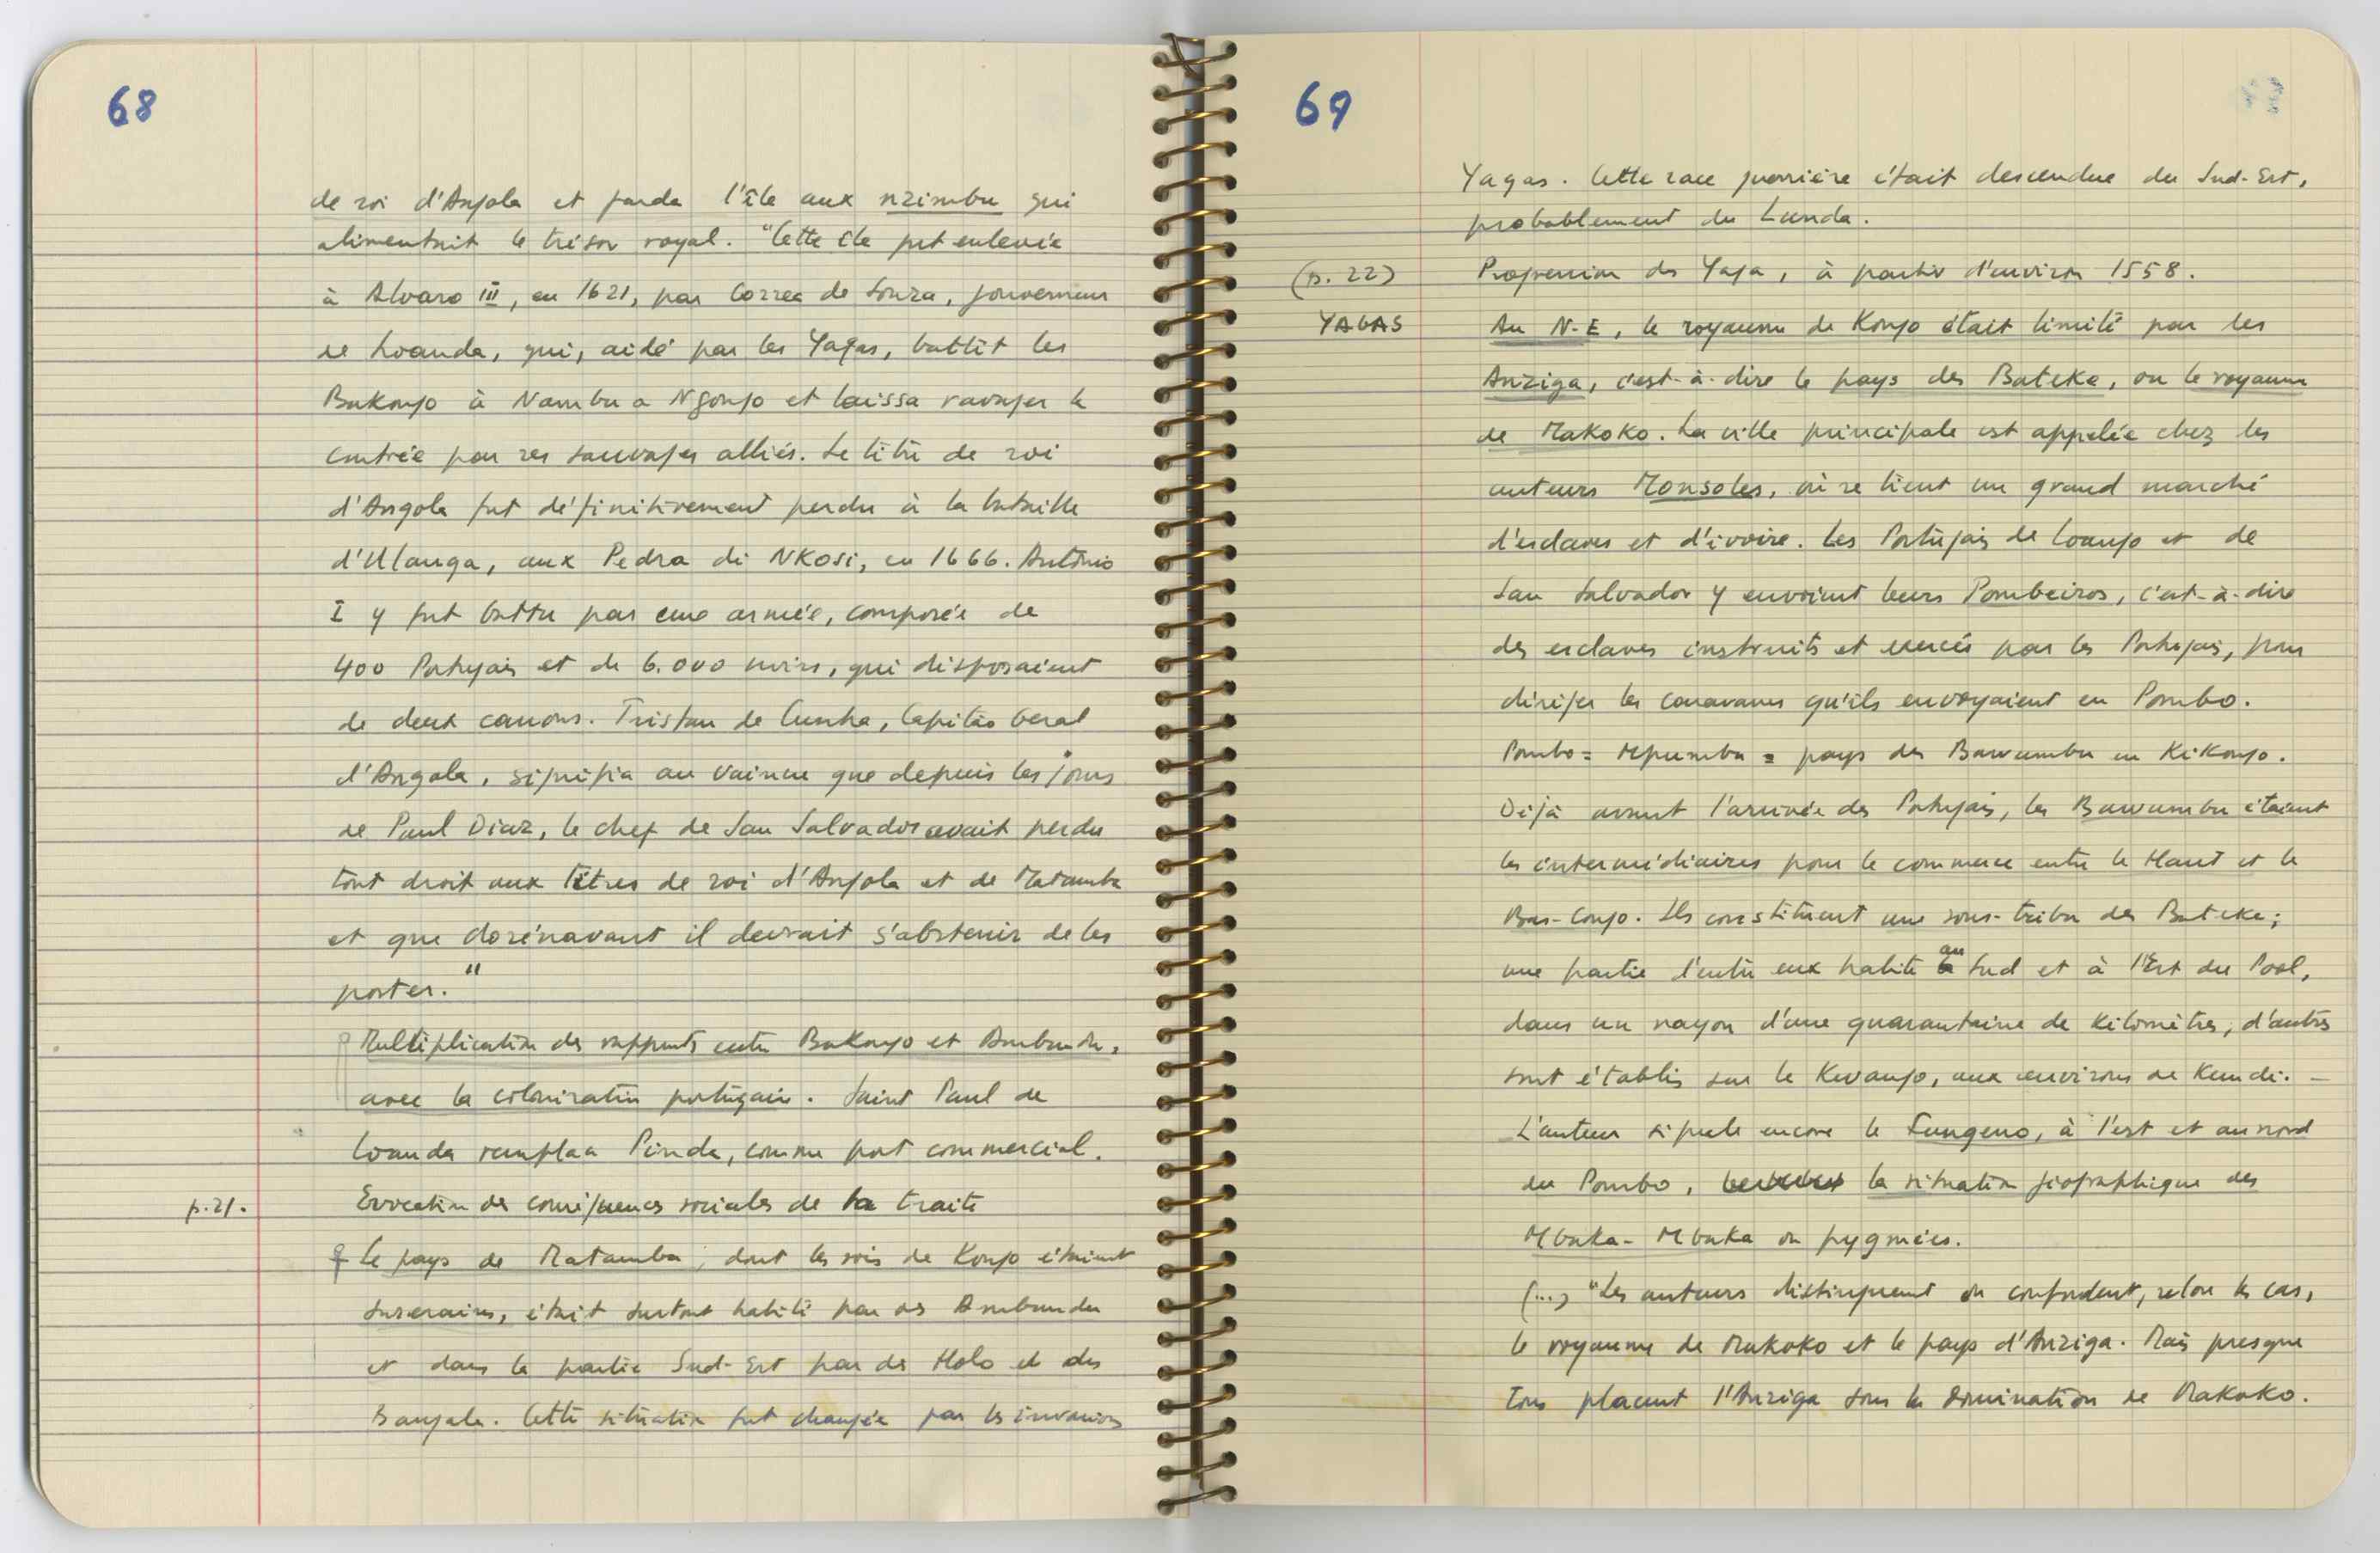 68
de roi d'Angola et garda l'île aux nzimbu qui
alimentait le trésor royal. "Cette île fut enlevée
à Alvaro III, en 1621, par Correa de Souza, gouverneur
de Loanda, qui, aidé par les Yagas, battit les
Bakongo à Nambu a Ngongo et laissa ravager la
contrée par ses sauvages alliés. Le titre de roi
d'Angola fut définitivement perdu à la bataille
d'Ulanga, aux Pedra di NKosi, en 1666. António
I y fut battu par une armée, composée de
400 Portugais et de 6.000 noirs, qui disposaient
de deux canons. Tristan de Cunha, Capitão Geral
d'Angola, signifia au vaincu que depuis les jours
de Paul Diaz, le chef de San Salvador avait perdu
tout droit aux titres de roi d'Angola et de Matamba
et que dorénavant il devrait s'abstenir de les
porter."
Multiplication des rapports entre Bakongo et Ambundu,
avec la colonisation portugaise. Saint Paul de
Loanda remplaa Pinda, comme port commercial.
p.21.
Evocation des conséquences sociales de la traite
Le pays de Matamba, dont les rois de Kongo étaient
suzerains, était surtout habité par des Ambundu
et dans la partie Sud-Est par des Holo et des
Bangala. Cette situation fut changée par les invasions
69
Yagas. Cette race guerrière était descendue du Sud-Est,
probablement du Lunda.
(p. 22)
Progression des Yaga, à partir d'environ 1558.
YAGAS
Au N-E, le royaume de Kongo était limité par les
Anziga, c'est-à-dire le pays des Bateke, ou le royaume
de Makoko. La ville principale est appelée chez les
auteurs Monsoles, où se tient un grand marché
d'esclaves et d'ivoire. Les Portugais de Loango et de
San Salvador y envoient leurs Pombeiros, c'est-à-dire
des esclaves instruits et exercés par les Portugais, pour
diriger les caravanes qu'ils envoyaient en Pombo.
Pombo = Mpumbu = pays des Bawumbu en Kikongo.
Déjà avant l'arrivée des Portugais, les Bawumbu étaient
les intermédiaires pour le commerce entre le Haut et le
Bas-Congo. Ils constituent une sous-tribu des Bateke;
une partie d'entre eux habite au Sud et à l'Est du Pool,
dans un rayon d'une quarantaine de kilomètres; d'autres
sont établis sur le Kwango, aux environs de Kundi. —
L'auteur signale encore le Fungeno, à l'est et au nord
du Pombo, la situation géographique des
Mbaka-Mbaka ou pygmées.
(...) "Les auteurs distinguent ou confondent, selon les cas,
le royaume de Makoko et le pays d'Anziga. Mais presque
tous placent l'Anziga sous la domination de Makoko.